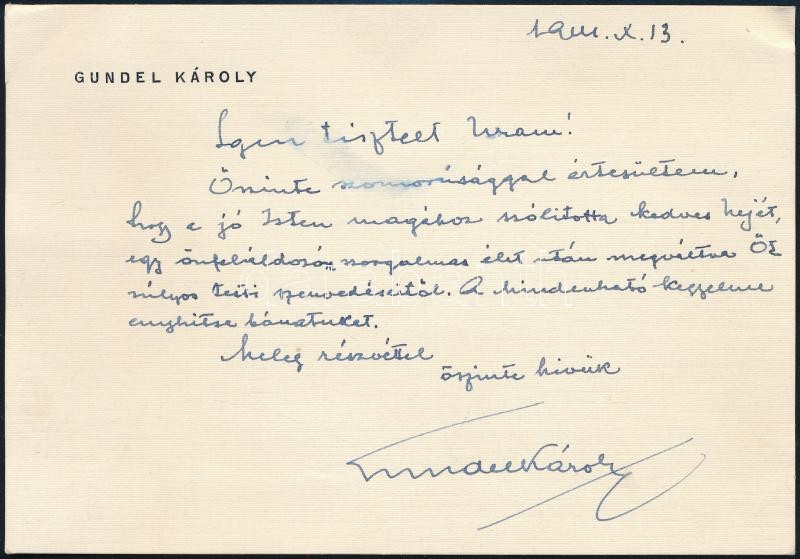 1941.X.13.
GUNDEL KÁROLY
Igen tisztelt Uram!
Őszinte szomorúsággal értesültem,
hogy a jó Isten magához szólította kedves Nejét,
egy önfeláldozóan szorgalmas élet után megváltva Őt
súlyos testi szenvedéseitől. A Mindenható kegyelme
enyhítse bánatukat.
Meleg részvéttel
őszinte hívük
Gundel Károly